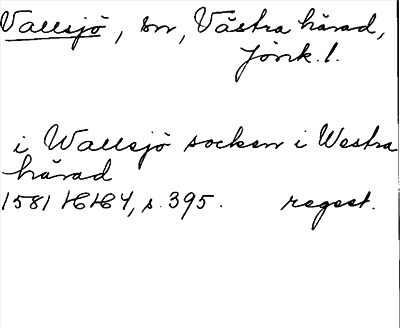 Vallsjö, sn, Västra härad,
Jönk. l.
i Wallsjö socken i Westra
härad
1581 HH4, s. 395. regest.